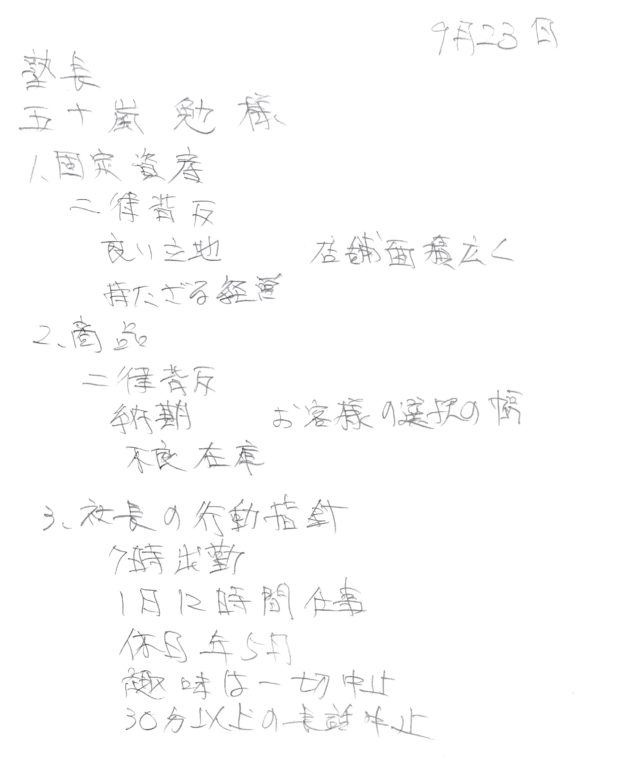 9月23日
塾長
五十嵐勉様
1、固定資産
二律背反
良い立地 店舗面積広く
持たざる経営
2、商品
二律背反
納期 お客様の選択の幅
不良在庫
3、社長の行動指針
7時出勤
1日12時間仕事
休日年5日
趣味は一切中止
30分以上の長話中止